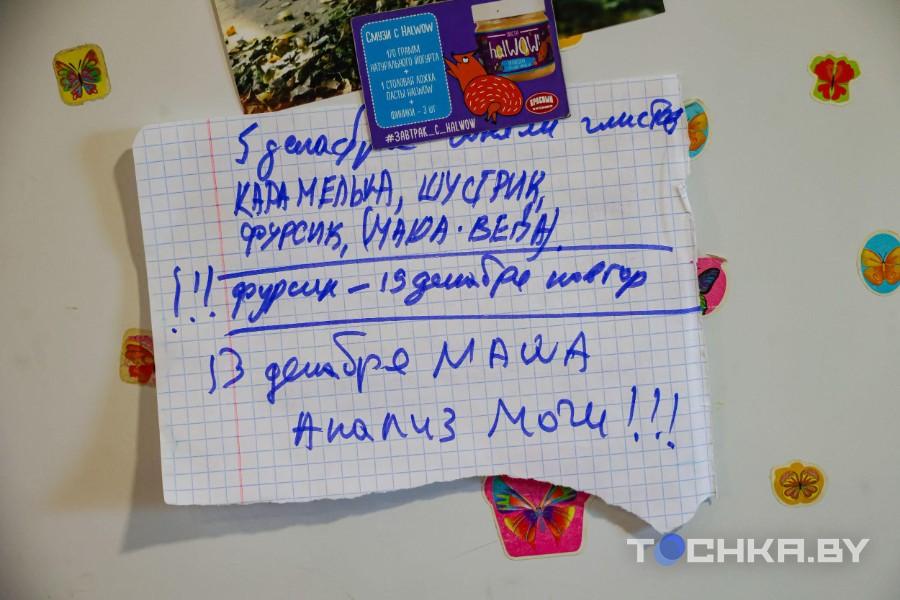 Смузи с Halwow
170 грамм
натурального йогурта
+
1 столовая ложка
пасты Halwow
+
финики – 3 шт
halwow!
КРАСНЫЙ
#ЗАВТРАК_С_HALWOW
5 декабр глистов
КАРАМЕЛЬКА, ШУСТРИК,
ФУРСИК, (МАША. ВЕРА).
!!! Фурсик – 19 декабря повтор
13 декабря МАША
Анализ мочи!!!
TOCHKA.BY